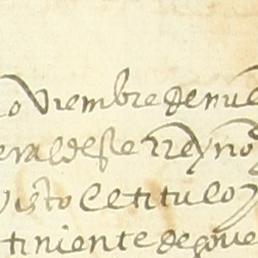 oviembre de mil
eral deste rreyno
visto el titulo
tiniente de gove